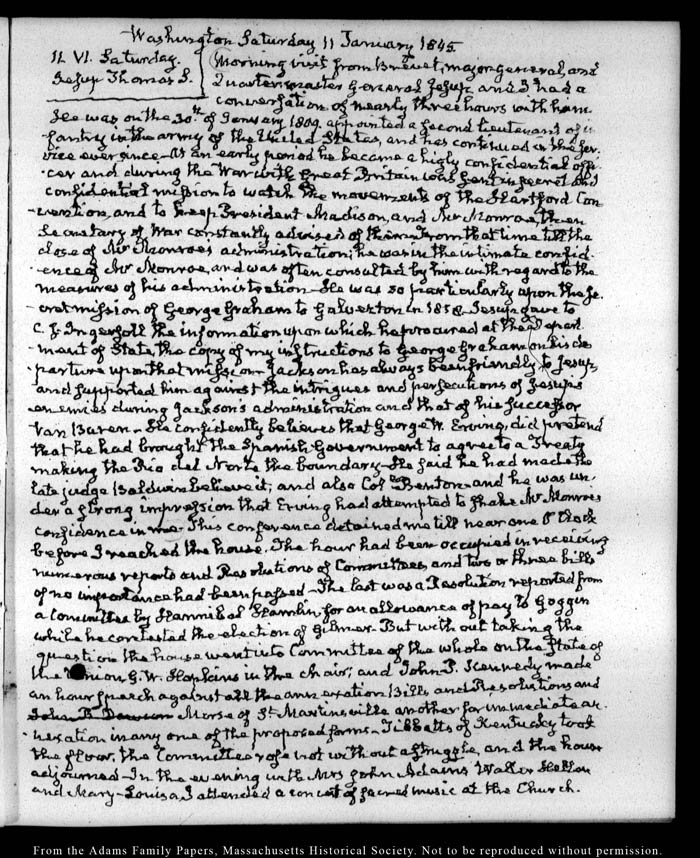 Washington Saturday 11 January 1845.
11. VI. Saturday.
Jesup Thomas S.
Morning visit from Brevet, major General, and
Quartermaster General Jesup and I had a
conversation of nearly three hours with him
He was on the 30th of January 1809, appointed a second lieutenant of in
fantry in the army of the United States, and has continued in the ser-
vice ever since - At an early period he became a highly confidential offi
cer and during the War with Great Britain was sent in secret and
confidential mission to watch the movements of the Hartford Con
vention, and to keep President Madison, and Mr Monroe, then
Secretary of War constantly advised of them. From that time till the
close of Mr Monroe's administration, he was in the intimate confid-
ence of Mr Monroe, and was often consulted by him with regard to the
measures of his administration - He was so particularly upon the se-
cret mission of George Graham to Galverton in 1818. Jesup gave to
C. J. Ingersoll the information upon which he procured at the Depart
ment of State, the copy of my instructions to George Graham on his de
parture upon that mission. Jackson has always been friendly to Jesup,
and supported him against the intrigues and persecutions of Jesup's
enemies during Jackson's administration and that of his successor
Van Buren - He confidently believes that George W. Erving, did pretend
that he had brought the Spanish Government to agree to a Treaty
making the Rio del Norte the boundary - He said he had made the
late judge Baldwin believe it, and also Col. Benton - and he was un-
der a strong impression that Erving had attempted to shake Mr Monroe's
confidence in me. This conference detained me till near one O'Clock
before I reached the house. The hour had been occupied in receiving
numerous reports and Resolutions of Committees, and two or three bills
of no importance had been passed - The last was a Resolution reported from
a Committee by Hannibal Hamlin for an allowance of pay to Goggin
while he contested the election of Gilmer - But without taking the
question the house went into Committee of the whole on the State of
the Union G. W. Hopkins in the chair; and John P. Kennedy made
an hour speech against all the annexation Bills and Resolutions and
John B. Dawson Morse of St. Martinsville another for immediate an-
nexation in any one of the proposed forms - Tibbatts of Kentucky took
the floor, the Committee rose not without a struggle, and the house
adjourned - In the evening with Mrs John Adams, Walter
and Mary-Louisa, I attended a concert of sacred music at the Church.
From the Adams Family Papers, Massachusetts Historical Society. Not to be reproduced without permission.